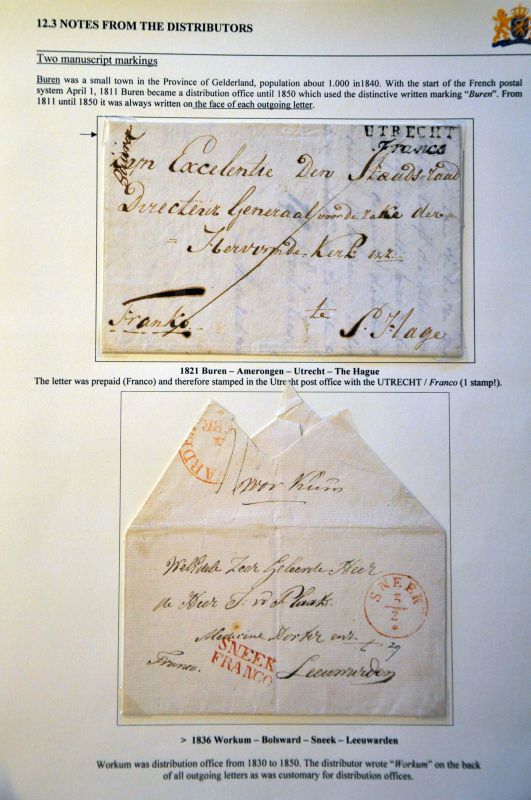 12.3 NOTES FROM THE DISTRIBUTORS
Two manuscript markings
Buren was a small town in the Province of Gelderland, population about 1.000 in1840. With the start of the French postal
system April 1, 1811 Buren became a distribution office until 1850 which used the distinctive written marking “Buren”. From
1811 until 1850 it was always written on the face of each outgoing letter.
UTRECHT
Franco
Excelentie Den Staads-raad
Directeur Generaal voor de zake der
Hervormde Kerk enz.
te
Franko
S. Hage
1821 Buren – Amerongen – Utrecht – The Hague
The letter was prepaid (Franco) and therefore stamped in the Utrecht post office with the UTRECHT / Franco (1 stamp!).
Workum
Weledele Zeer Geleerde Heer
de Heer
SNEEK
Medicine Doctor enz.
SNEEK
FRANCO
Franco.
Leeuwarden
> 1836 Workum – Bolsward – Sneek – Leeuwarden
Workum was distribution office from 1830 to 1850. The distributor wrote “Workum” on the back
of all outgoing letters as was customary for distribution offices.